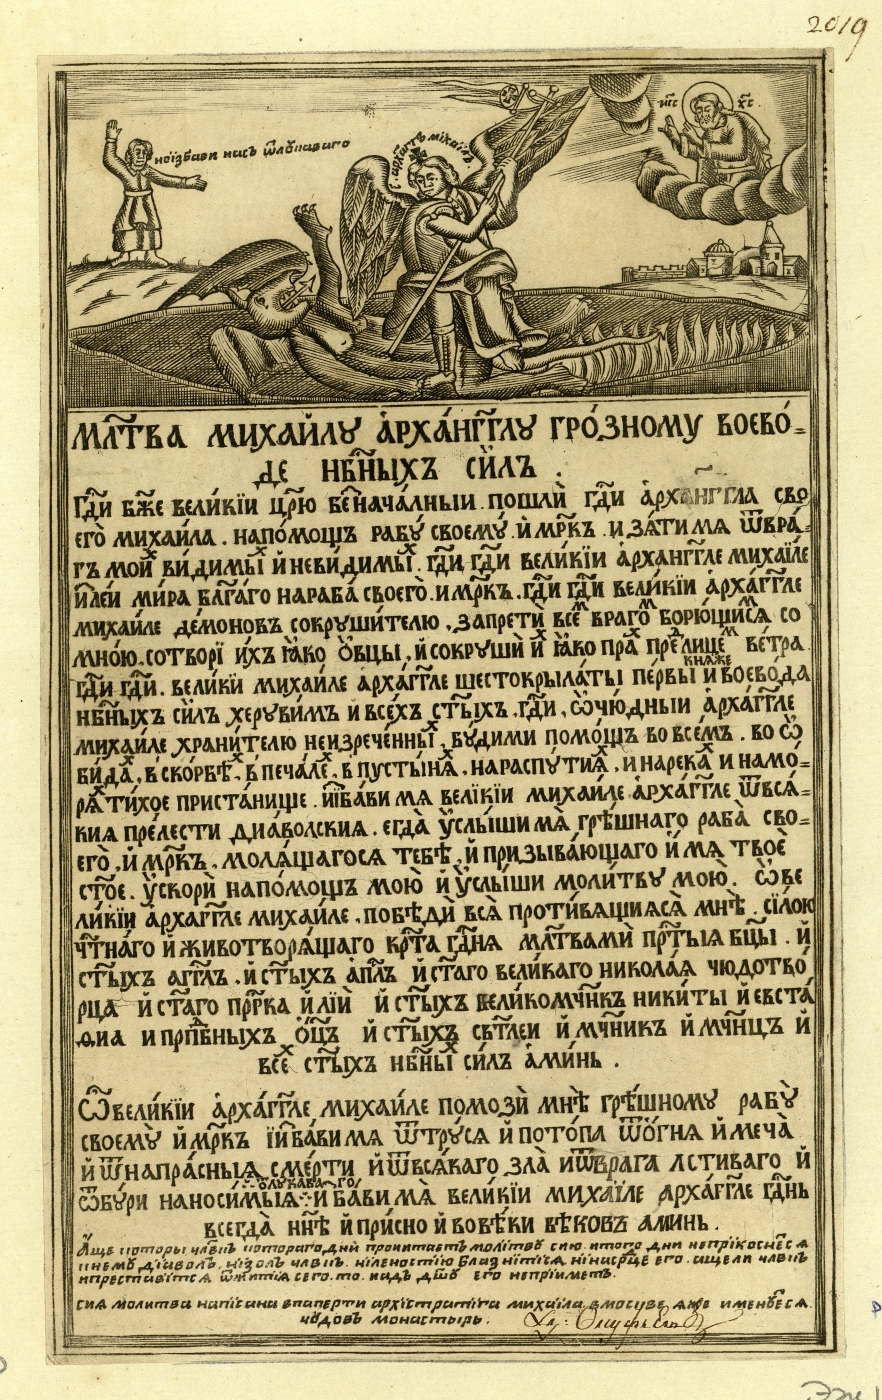 2019
но избави нась ѿ лꙋкаваго
с. архагг҃лъ михаилъ
и҃с х҃с
Мл҃тва михаи́лу а҆рха́нгг҃лу гро́зному воево́=
де нб҃ныхъ си́лъ .
Гд҃и бж҃е вели́кїи цр҃ю бе҃нача́лныи . пошли̇̀ гд҃и а҆рха́нгг҃ла сво
его̀ михаи́ла . на по́мощъ рабꙋ̀ своемꙋ̀ . и҆мр҃къ . из̾ѧ́ти мѧ ѿ вра=
гъ мои̾х ви́димы̾х и҆ неви́димы̾х . гд҃и гд҃и вели́кїи а҆рха́нгг҃ле михаи́ле
и҆зле́и ми́ра бл҃га́го на раба̀ своего̀ . имр҃къ . гд҃и гд҃и вели́кїи а҆рха́гг҃ле
михаи́ле де́моновъ сокруши́телю . запрети̇̀ все̾м враго̾м борю́щи̾мсѧ со
мно́ю . сотвори̇̀ и҆́хъ ꙗ҆́ко ѻ҆́вцы . и҆ сокруши̇̀ и҆̾х ꙗ҆́ко пра̾х пре̾д лице̾м ве́тра .
гд҃и гд҃и . вели́кїи михаи́ле а҆рха́гг҃ле шестокрыла́ты пе́рвы кнѧже и҆ воево́да
нб҃ныхъ си́лъ херꙋви́мъ и҆ все́хъ ст҃ыхъ . гд҃и . ѽ чю́дныи а҆рха́гг҃ле
михаи́ле храни́телю неизрече́нны̾х . бꙋ́ди ми помо́щъ во все́мъ . во ѡ̾
би́да̾х . в̾ ско́рбѣ̾х . в̾ печа́ле̾х . в пꙋсты́нѧ̾х . на распꙋ́тиѧ̾х . и на река̾х и на мо́=
рѧ̾х ти́хое приста́нище . и҆зба́ви мѧ вели́кїи михаи́ле а҆рха́гг҃ле ѿ всѧ́=
киѧ пре́лести диа́волскиѧ . егда̀ ᲂу҆слы́ши мѧ̀ грѣ́шнаго раба̀ сво=
его̀ . и҆мр҃къ . молѧ́щагосѧ тебѣ̀ . и҆ призыва́ющаго и҆́мѧ твоѐ
ст҃о́е . ᲂу҆скори̇̀ на по́мощъ мою̀ и҆ ᲂу҆слы́ши моли́твꙋ мою̀ . ѽ ве
ли́кїи а҆рха́гг҃ле михаи́ле . побѣди̇̀ всѧ̀ проти́вѧщиясѧ мнѣ̀ . си́лою
чт҃на́го и҆ животворѧ́щаго кр҃та̀ гд҃нѧ мл҃твами пр҃ты́ѧ бц҃ы . и҆
ст҃ы́хъ агг҃лъ . и҆ ст҃ы́хъ ап҃лъ и҆ ст҃а́го вели́каго никола́ѧ чюдотво́
рца и҆ ст҃а́го пр҃рка и҆лїи̇̀ и҆ ст҃ы́хъ великомч҃нкъ ники́ты и҆ евста́
фиа и прп҃бныхъ ѻ҆ц҃ъ и҆ ст҃ы́хъ свт҃леи и҆ мч҃никъ и҆ мч҃нцъ и҆
все̾х ст҃ы́хъ нб҃ны̾х си́лъ а҆ми́нь .
Ѽ вели́кїи а҆рха́гг҃ле михаи́ле помози̇̀ мнѣ̀ грѣ́шномꙋ рабꙋ̀
своемꙋ̀ и҆мр҃къ и҆зба́ви мѧ ѿ трꙋ́сѧ и҆ пото́па ѿ о҆гнѧ̀ и҆ меча̀
и҆ ѿ напра́сныѧ сме́рти и҆ ѿ всѧ́каго зла̀ и ѿ врага̀ лсти́ваго и҆
ѿ бꙋ́ри наноси́мыѧ и҆ ѿ лꙋкава́го и҆зба́ви мѧ̀ вели́кїи михаи́ле архагг҃ле гд҃нь
всегда̀ нн҃ѣ и҆ при́сно и҆ во вѣ́ки вѣко́въ аминь .
Аще которы члв҃къ которагѡ дн҃и прочитаетъ молитвꙋ сию . и того дни не прикоснется
к немꙋ дїаволъ . ни золъ члв҃къ . ни леностїю блазнитсѧ ни на срд҃це его . аще ли члв҃къ
и преставитсѧ ѿ житїѧ сего . то адъ дш҃ꙋ его не прииметъ .
сиѧ молитва написана в паперти архистратига михаила в москве ꙗже именꙋетсѧ .
чꙋдовъ монастырь .